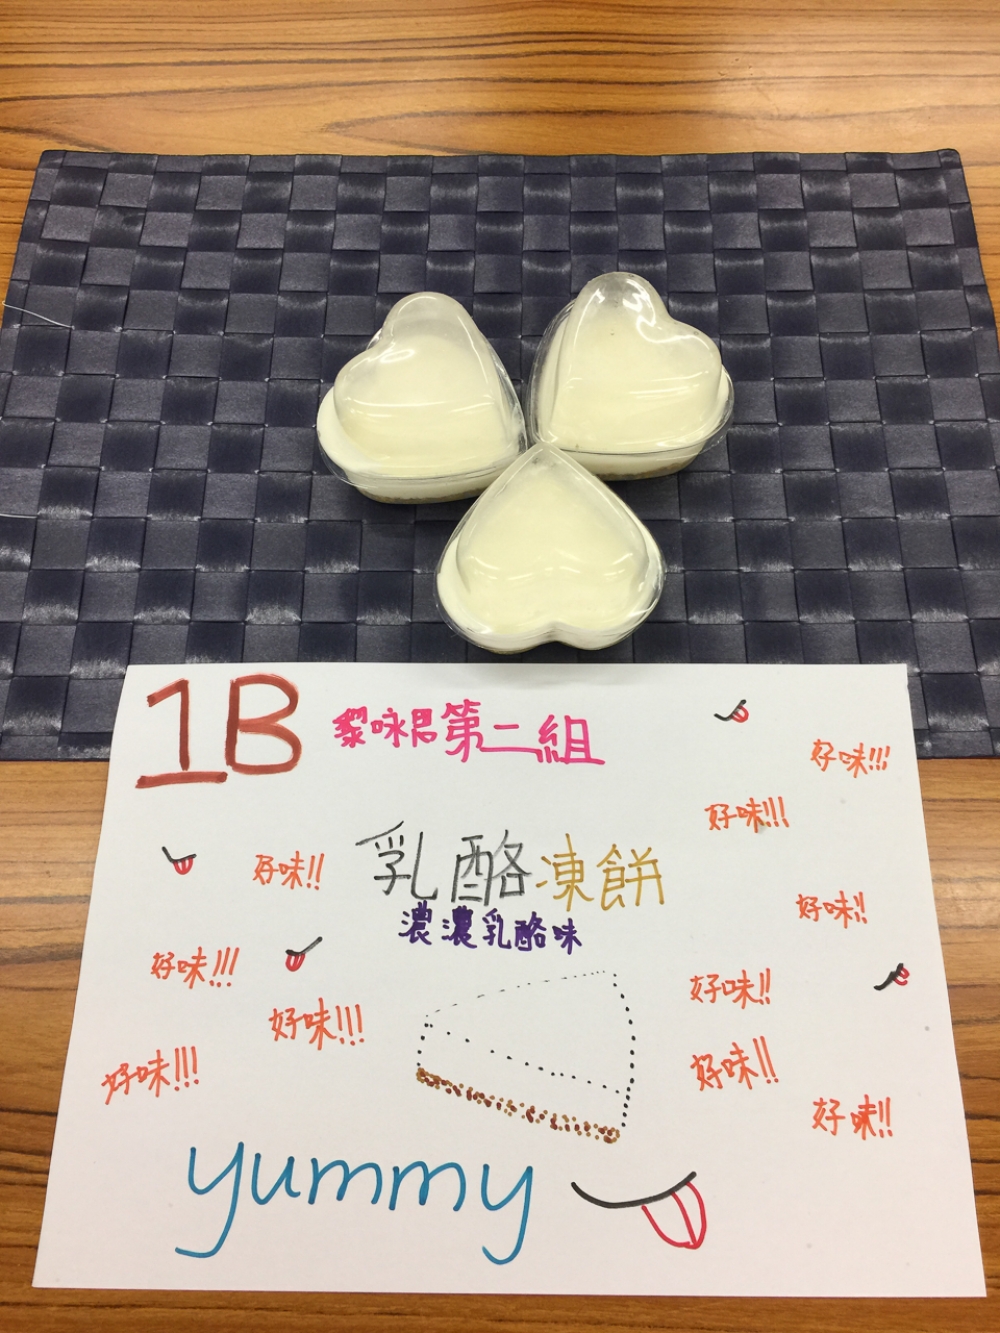 1B
黎咏君第二組
好味!!!
好味!!!
好味!!
乳酪凍餅
濃濃乳酪味
好味!!
好味!!!
好味!!
好味!!!
好味!!!
好味!!
好味!!
yummy